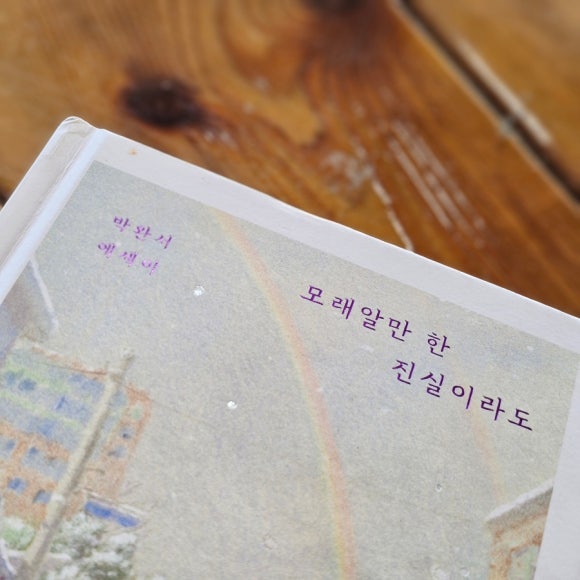 박완서
에세이
모래알만 한
진실이라도